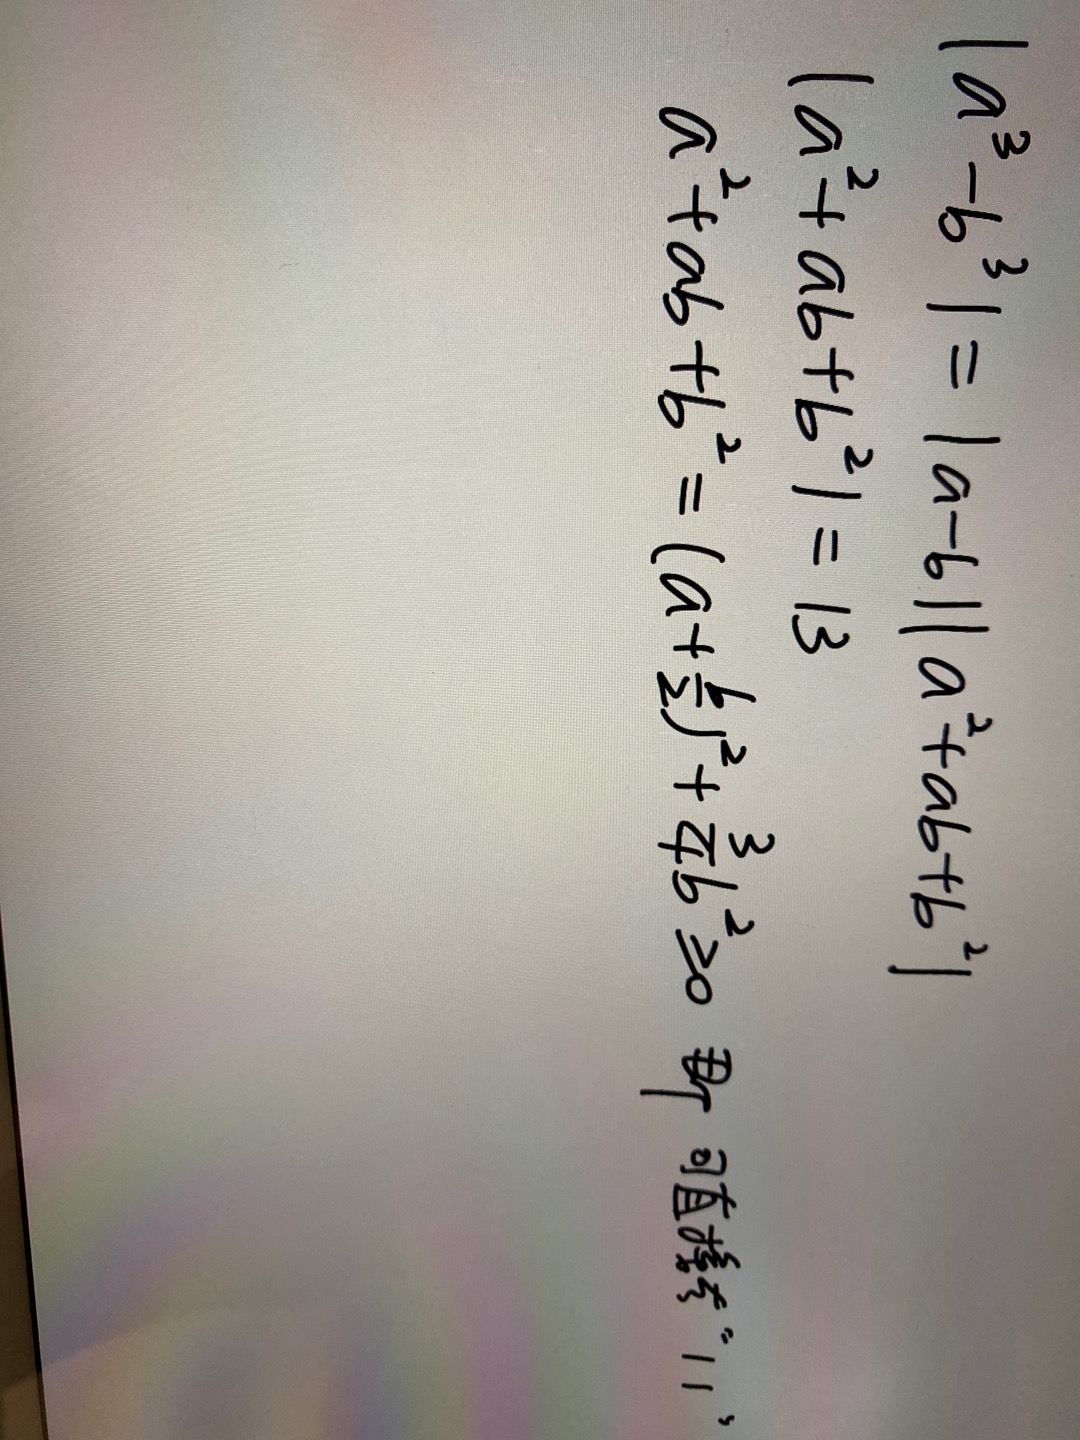 |a³-b³|=|a-b||a²+ab+b²|
|a²+ab+b²|=13
a²+ab+b²=(a+b/2)²+3/4b²≥0 即可直接去“||”